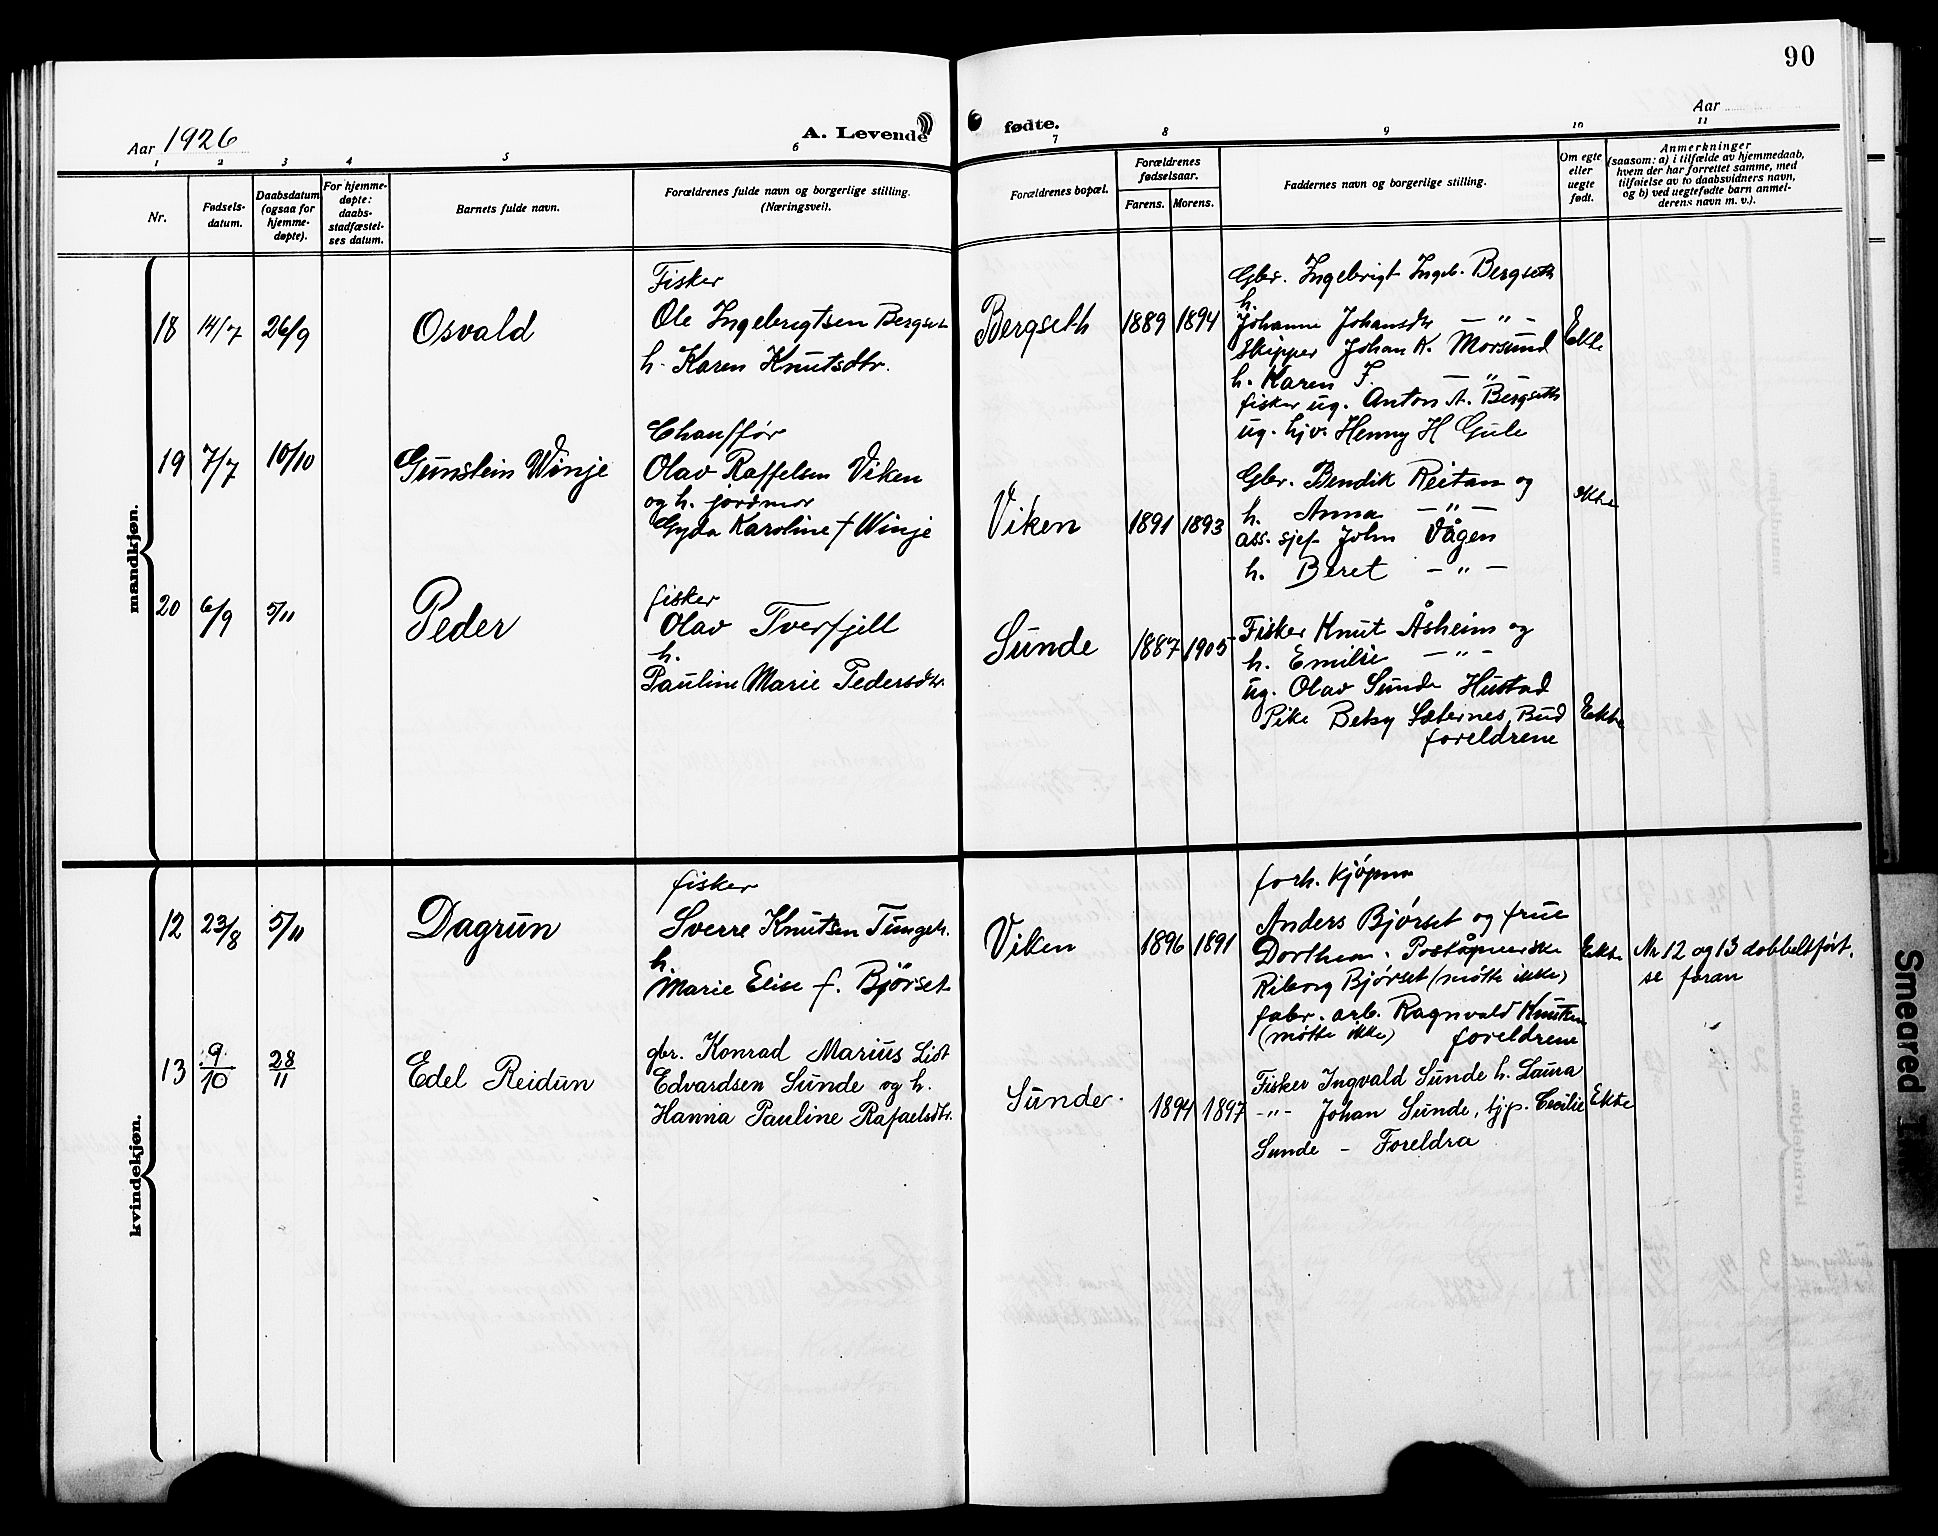 90
Aar 1926
A. Levende fødte.
Aar
1 2 3 4 5 6 7 8 9 10 11
Nr.
Fødsels-
datum.
Daabsdatum
(ogsaa for
hjemme-
døpte).
For hjemme-
døpte:
daabs-
stadfæstel-
ses datum.
Barnets fulde navn.
Forældrenes fulde navn og borgerlige stilling.
(Næringsvei).
Forældrenes bopæl.
Forældrenes
fødselsaar.
Farens. Morens.
Faddernes navn og borgerlige stilling.
Om egte
eller
uegte
født.
Anmerkninger
(saasom: a) i tilfælde av hjemmedaab,
hvem der har forrettet samme, med
tilføielse av to daabsvidners navn,
og b) ved uegtefødte barn anmel-
derens navn m. v.).
mandkjøn.
18 14/7 26/9 Osvald
Fisker
Ole Ingebrigtsen Bergset
h. Karen Knutsdtr.
Bergseth 1889 1894
Gbr. Ingebrigt Ingeb. Bergseth
h.
Johanne Johansdtr — " —
Skipper Johan K. Morsund
h. Karen F. — " —
fisker ug. Anton A. Bergseth
ug. hjv. Henny H Gule
Ekte
19 7/7 10/10 Gunstein Winje
Chauffør
Olav Raffelsen Viken
og h. jordmor
Gyda Karoline f Winje
Viken 1891 1893
Gbr. Bendik Reitan og
h. Anna — " —
ass. sjef John Vågen
h. Beret — " —
ekte
20 6/9 5/11 Peder
fisker
Olav Tverfjell
h.
Pauline Marie Pedersdtr.
Sunde 1887 1905
Fisker Knut Åsheim og
h. Emilie — " —
ug. Olav Sunde Hustad
Pike Betsy Sæternes, Bud
foreldrene
Ekte
kvindekjøn.
12 23/8 5/11 Dagrun
fisker
Sverre Knutsen Tunget.
h.
Marie Elise f. Bjørset
Viken 1896 1891
forh. kjøpm
Anders Bjørset og frue
Dorthea. Poståpnerske
Riborg Bjørset (møtte ikke)
fabr. arb. Ragnvald Knutsen
(møtte ikke) foreldrene
Ekte
Nr 12 og 13 dobbeltført.
se foran
13 9/10 28/11 Edel Reidun
gbr. Konrad Marius Lidt
Edvardsen Sunde og h.
Hanna Pauline Rafaelsdtr.
Sunde. 1894 1897
Fisker Ingvald Sunde h. Laura
-"- Johan Sunde, tjp. Cecilie
Sunde – Foreldra
Ekte
Smeared